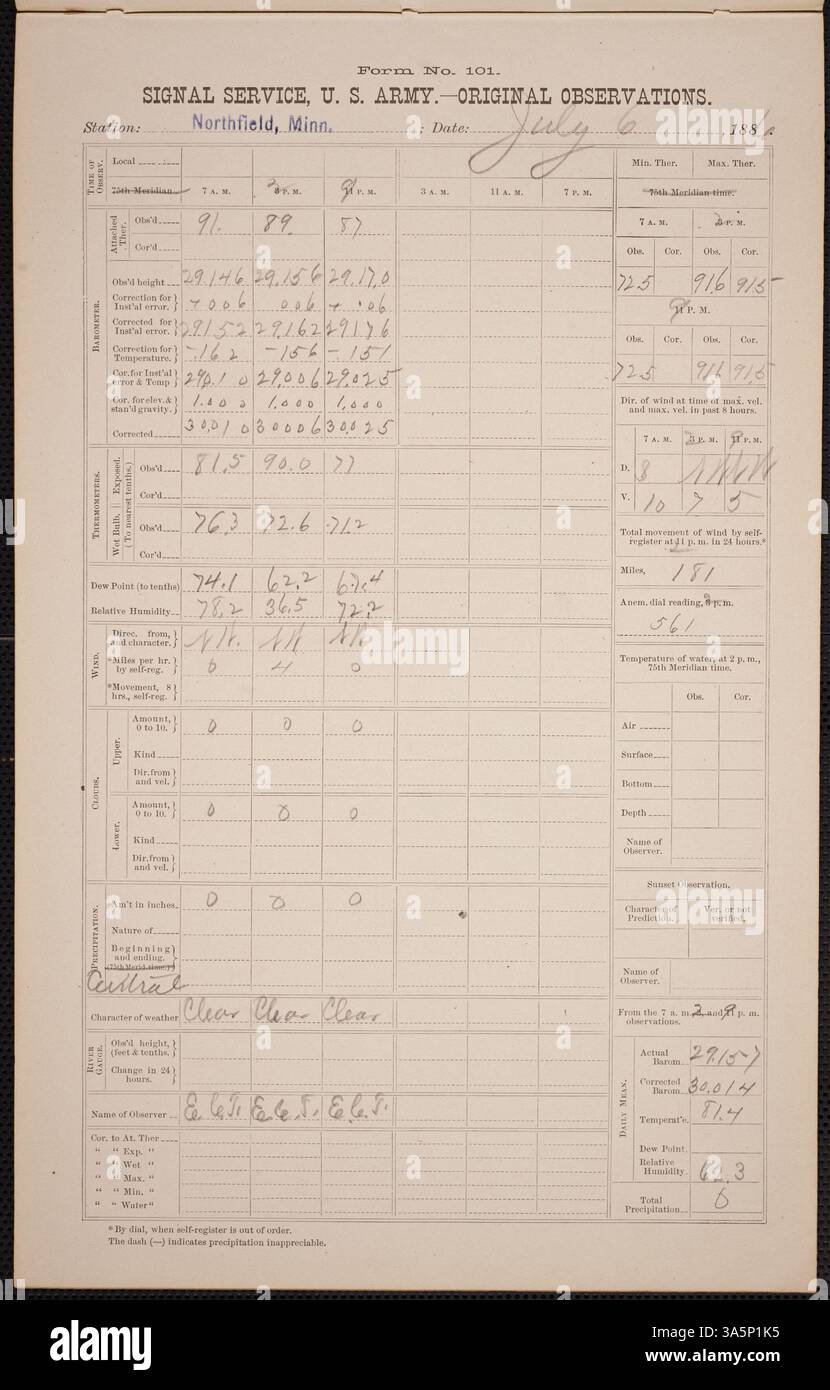 Form No. 101.
SIGNAL SERVICE, U. S. ARMY.—ORIGINAL OBSERVATIONS.
Station: Northfield, Minn. ; Date: July 6, 188
TIME OF OBSERV.
Local
75th Meridian 7 A. M. 3 P. M. 11 P. M. 3 A. M. 11 A. M. 7 P. M.
Attached Ther.
Obs'd 91. 89 87
Cor'd
BAROMETER.
Obs'd height 29.146 29.156 29.170
Correction for Inst'al error. + 006 006 + .006
Corrected for Inst'al error. 29152 29.162 29176
Correction for Temperature. -.162 -156 -.151
Cor. for Inst'al error & Temp 29.006 29.025
Cor. for elev. & stan'd gravity. 1.000 1.000 1,000
Corrected 30010 30006 30.025
THERMOMETERS.
Exposed. (To nearest tenths.)
Obs'd 81.5 90.0 77
Cor'd
Wet Bulb.
Obs'd 76.3 72.6 71.2
Cor'd
Dew Point (to tenths) 74.1 62.2 67.4
Relative Humidity 78.2 36.5 72.2
WIND.
Direc. from, and character. NW. NW NW
*Miles per hr. by self-reg. 0 4 0
*Movement, 8 hrs., self-reg.
CLOUDS.
Upper.
Amount, 0 to 10. 0 0 0
Kind
Dir. from and vel.
Lower.
Amount, 0 to 10. 0 0 0
Kind
Dir. from and vel.
PRECIPITATION.
Am't in inches. 0 0 0
Nature of
Beginning and ending.
(75th Merid. time.)
Central
Character of weather Clear Clear Clear
RIVER GAUGE.
Obs'd height, (feet & tenths.)
Change in 24 hours.
Name of Observer E.C.T. E.C.T. E.C.T.
Cor. to At. Ther
" " Exp. "
" " Wet "
" " Max. "
" " Min. "
" " Water"
* By dial, when self-register is out of order.
The dash (—) indicates precipitation inappreciable.
Min. Ther. Max. Ther.
75th Meridian time.
7 A. M. P. M.
Obs. Cor. Obs. Cor.
72.5 91.6 91.5
11 P. M.
Obs. Cor. Obs. Cor.
72.5 91.6 91.5
Dir. of wind at time of max. vel. and max. vel. in past 8 hours.
7 A. M. 3 P. M. 11 P. M.
D. NW NW
V. 10 7 5
Total movement of wind by self-register at 11 p. m. in 24 hours.*
Miles, 181
Anem. dial reading, p. m.
561
Temperature of water, at 2 p. m., 75th Meridian time.
Obs. Cor.
Air
Surface
Bottom
Depth
Name of Observer.
Sunset Observation.
Character of Prediction. Ver. or not verified.
Name of Observer.
From the 7 a. m. and 11 p. m. observations.
DAILY MEAN.
Actual Barom. 29.157
Corrected Barom. 30.014
Temperat'e. 81.4
Dew Point.
Relative Humidity. 62.3
Total Precipitation 0
alamy
Image ID: 3A5P1K5
www.alamy.com